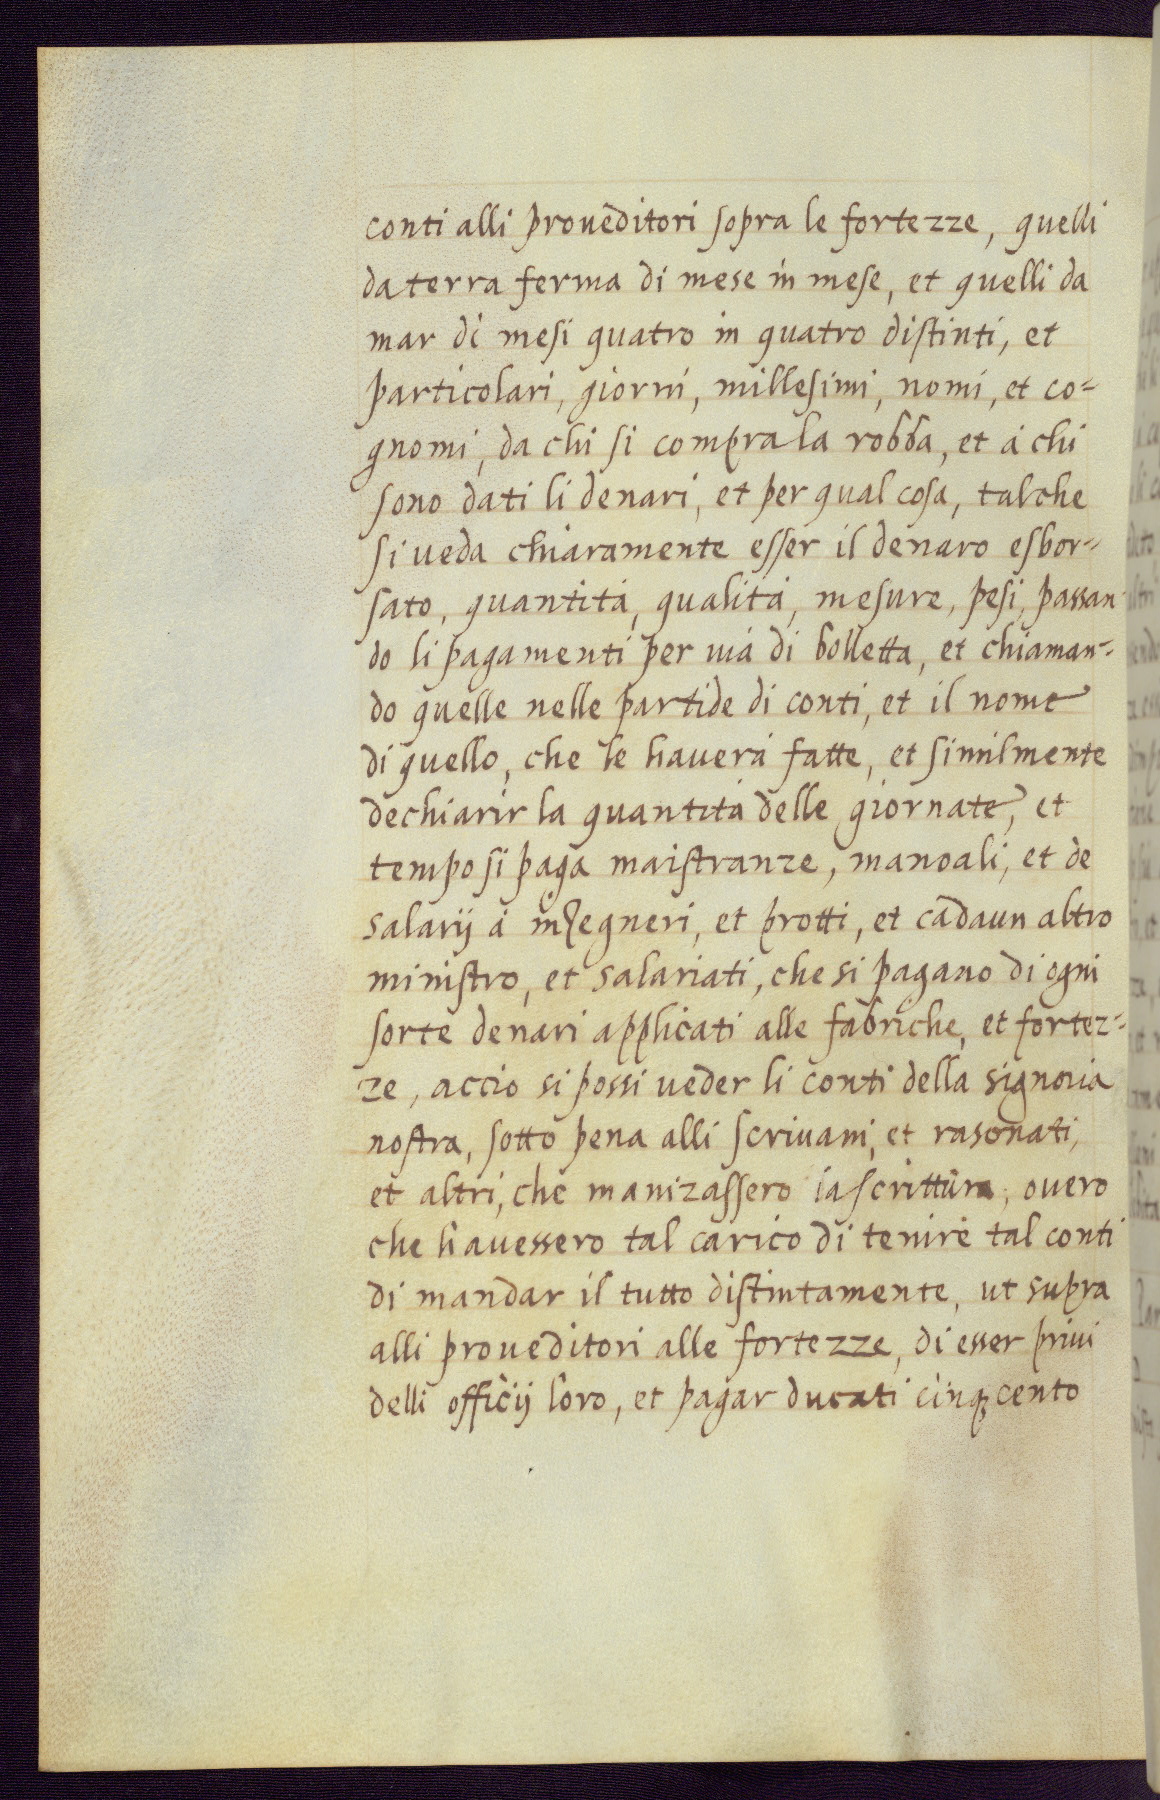 conti alli proueditori sopra le fortezze, quelli
da terra ferma di mese in mese, et quelli da
mar di mesi quatro in quatro distinti, et
particolari, giorni, millesimi, nomi, et co-
gnomi, da chi si compra la robba, et à chi
sono dati li denari, et per qual cosa, talche
si ueda chiaramente esser il denaro esbor-
sato, quantità, qualità, mesure, pesi, passan
do li pagamenti per uià di bolletta, et chiaman-
do quelle nelle partide di conti, et il nome
di quello, che le hauerà fatte, et similmente
dechiarir la quantità delle giornate, et
tempo si paga maistranze, manoali, et de
salarij à inzegneri, et protti, et cadaun altro
ministro, et salariati, che si pagano di ogni
sorte denari applicati alle fabriche, et fortez-
ze, accio si possi ueder li conti della signoria
nostra, sotto pena alli scriuani, et rasonati,
et altri, che manizassero la scrittura, ouero
che hauessero tal carico di tenire tal conti
di mandar il tutto distintamente, ut supra
alli proueditori alle fortezze, di esser priui
delli officij loro, et pagar ducati cinq;cento